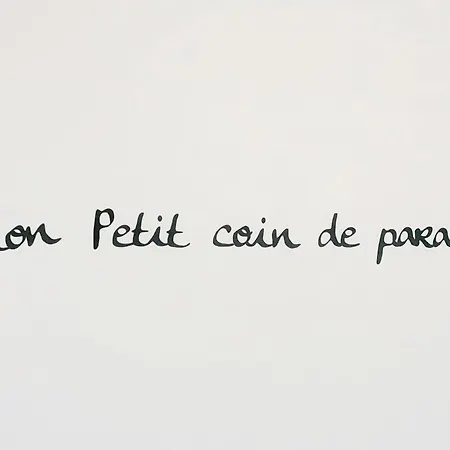 on Petit coin de para